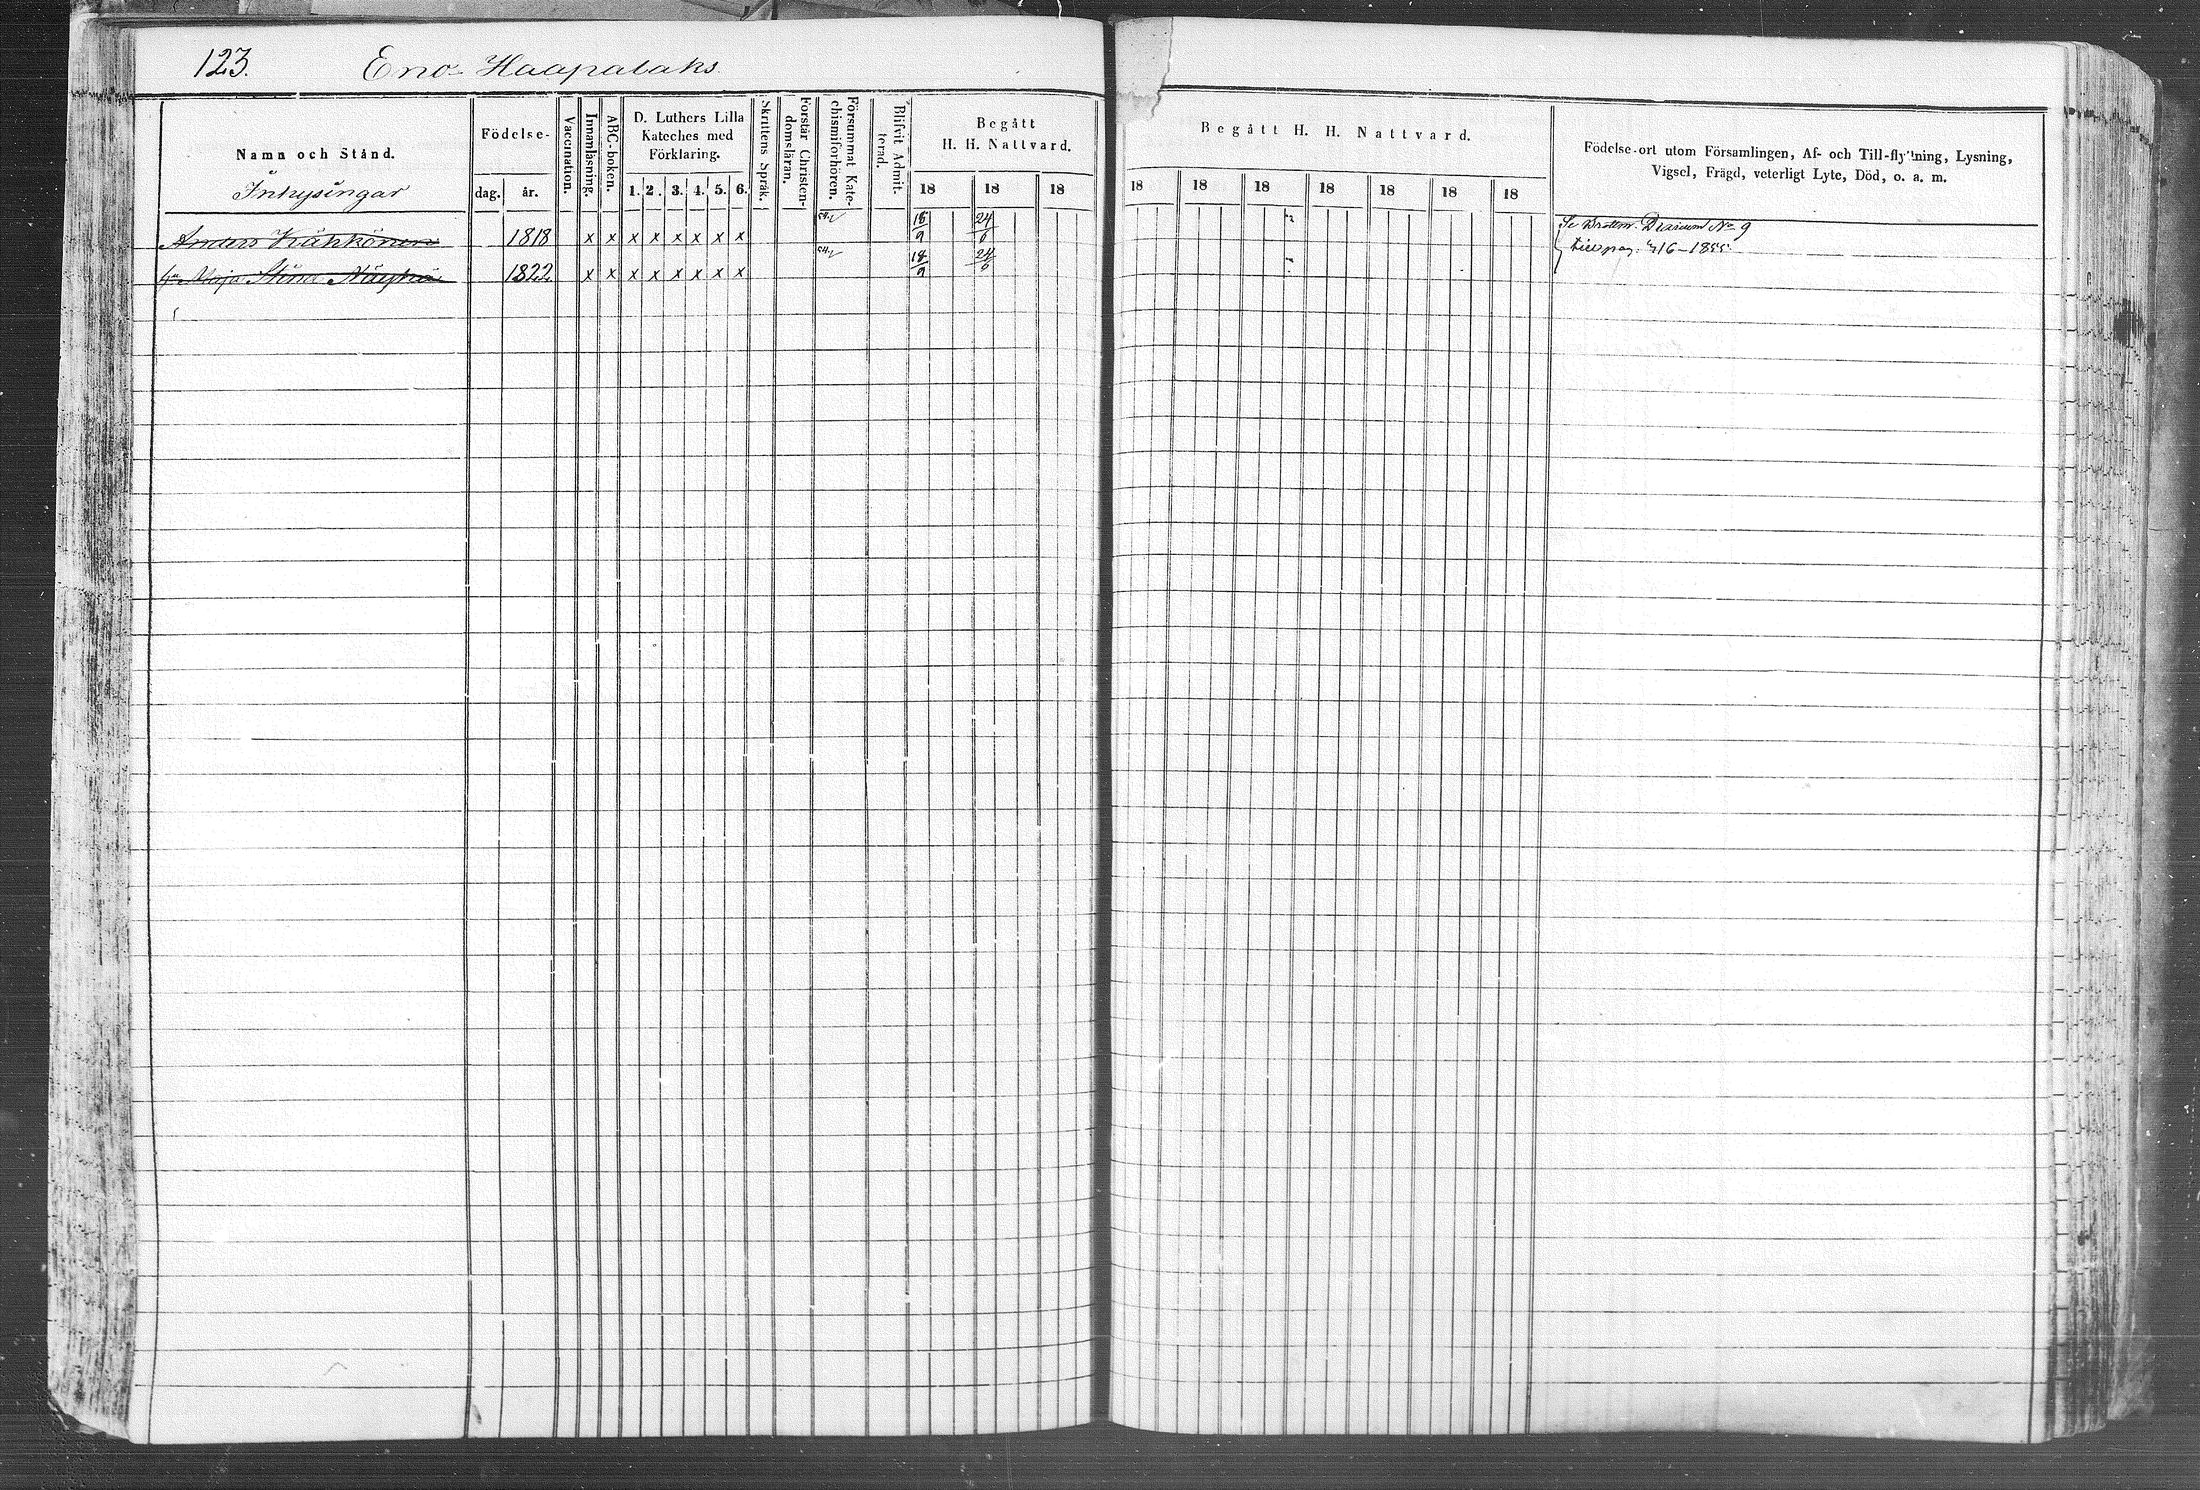 123. Eno Haapalaks
Namn och Stånd.
Inhysingar
Födelse-
dag. år.
Vaccination.
Innanläsning.
ABC-boken.
D. Luthers Lilla
Kateches med
Förklaring.
1. 2. 3. 4. 5. 6.
Skriftens Språk.
Förstår Christen-
domsläran.
Försummat Kate-
chismiförhören.
Blifvit Admit-
terad.
Begått
H. H. Nattvard.
18 18 18
Begått H. H. Nattvard.
18 18 18 18 18 18 18
Födelse-ort utom Församlingen, Af- och Till-flyttning, Lysning,
Vigsel, Frägd, veterligt Lyte, Död, o. a. m.
Anders Kähkönen 1818 x x x x x x x x 18/9 24/6
Maja Stina 1822 x x x x x x x x 18/9 24/6
Se Brottm. Diarium No 9
pag. 416-1855.